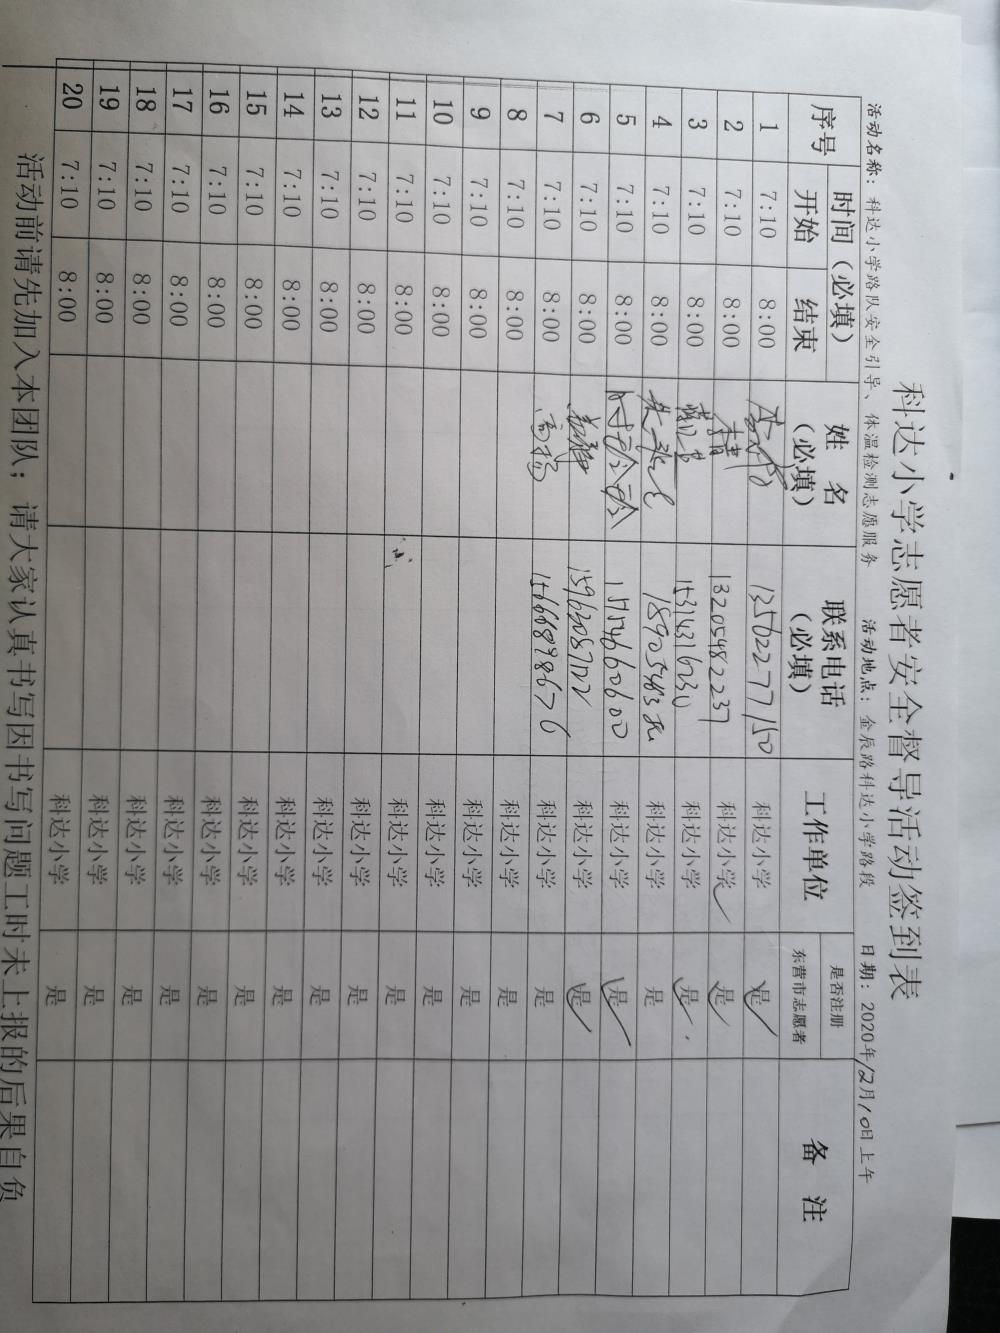 科达小学志愿者安全督导活动签到表
活动名称：科达小学路队安全引导、体温检测志愿服务 活动地点：金辰路科达小学路段 日期：2020年12月10日上午
序号 时间（必填） 姓 名（必填） 联系电话（必填） 工作单位 是否注册东营市志愿者 备 注
开始 结束
1 7:10 8:00 13502277150 科达小学 是
2 7:10 8:00 李静 13205482237 科达小学 是
3 7:10 8:00 科达小学 是
4 7:10 8:00 科达小学 是
5 7:10 8:00 时玲玲 17546660600 科达小学 是
6 7:10 8:00 科达小学 是
7 7:10 8:00 高杨 15666898676 科达小学 是
8 7:10 8:00 科达小学 是
9 7:10 8:00 科达小学 是
10 7:10 8:00 科达小学 是
11 7:10 8:00 科达小学 是
12 7:10 8:00 科达小学 是
13 7:10 8:00 科达小学 是
14 7:10 8:00 科达小学 是
15 7:10 8:00 科达小学 是
16 7:10 8:00 科达小学 是
17 7:10 8:00 科达小学 是
18 7:10 8:00 科达小学 是
19 7:10 8:00 科达小学 是
20 7:10 8:00 科达小学 是
活动前请先加入本团队；请大家认真书写因书写问题工时未上报的后果自负